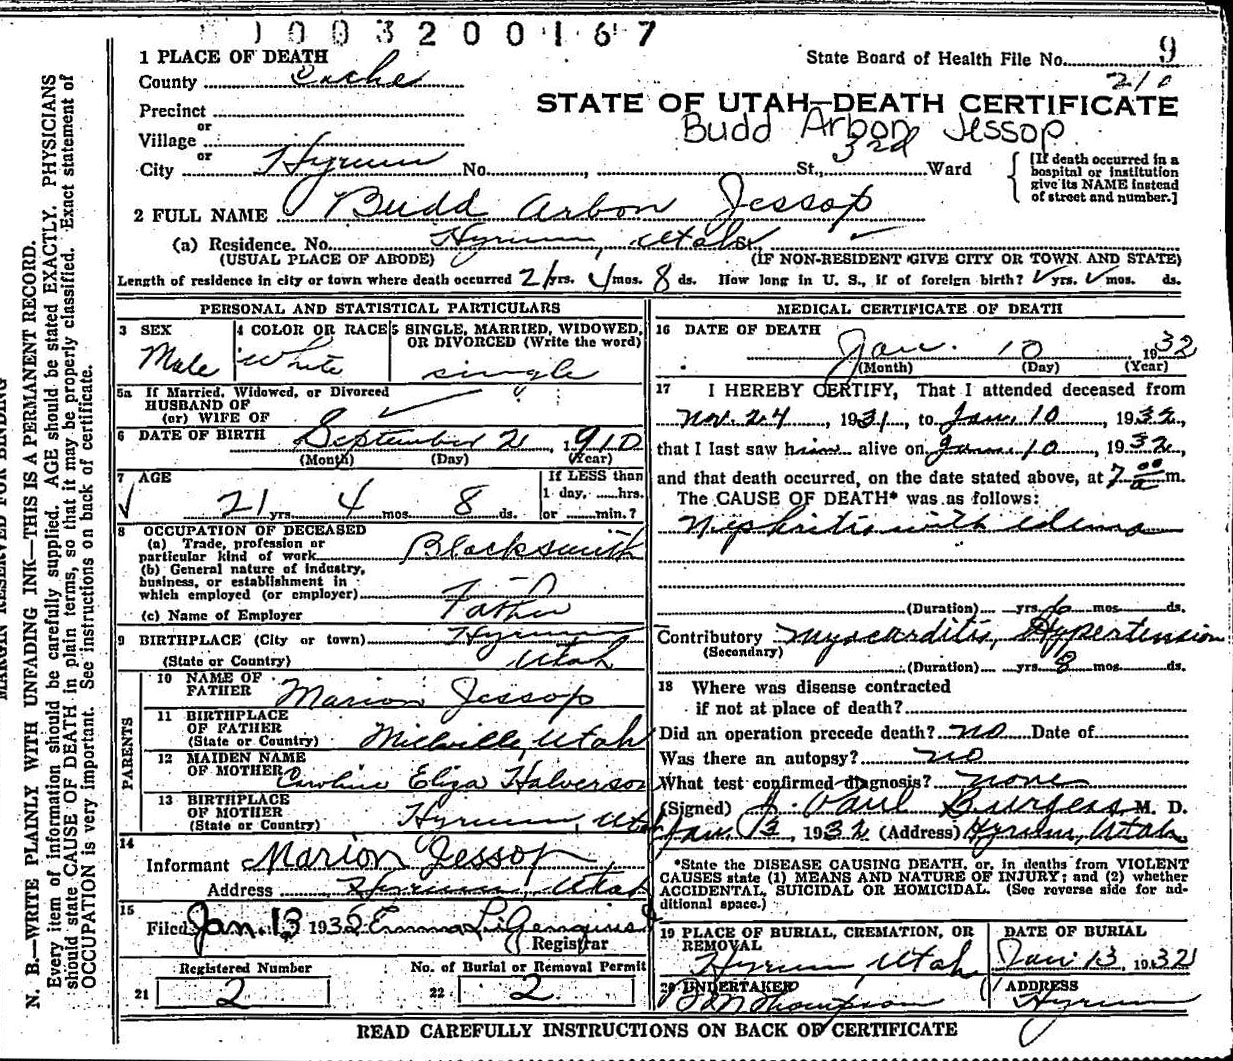 1003200167
1 PLACE OF DEATH
State Board of Health File No. 9
County Cache
210
STATE OF UTAH—DEATH CERTIFICATE
Precinct
Budd Arbon Jessop
or
Village
or
City Hyrum No. , St., 3rd Ward
[If death occurred in a hospital or institution give its NAME instead of street and number.]
2 FULL NAME Budd Arbon Jessop
(a) Residence. No. Hyrum, Utah St.,
(USUAL PLACE OF ABODE) (IF NON-RESIDENT GIVE CITY OR TOWN AND STATE)
Length of residence in city or town where death occurred 21 yrs. 4 mos. 8 ds. How long in U. S., if of foreign birth? yrs. mos. ds.
PERSONAL AND STATISTICAL PARTICULARS
3 SEX
Male
4 COLOR OR RACE
White
5 SINGLE, MARRIED, WIDOWED, OR DIVORCED (Write the word)
single
5a If Married, Widowed, or Divorced
HUSBAND OF
(or) WIFE OF
6 DATE OF BIRTH September 2, 1910
(Month) (Day) (Year)
7 AGE
21 yrs. 4 mos. 8 ds.
If LESS than
1 day, ......hrs.
or ......min.?
8 OCCUPATION OF DECEASED
(a) Trade, profession or
particular kind of work Blacksmith
(b) General nature of industry,
business, or establishment in
which employed (or employer)
(c) Name of Employer Father
9 BIRTHPLACE (City or town) Hyrum
(State or Country) Utah
PARENTS
10 NAME OF
FATHER Marion Jessop
11 BIRTHPLACE
OF FATHER
(State or Country) Millville, Utah
12 MAIDEN NAME
OF MOTHER Caroline Eliza Halverson
13 BIRTHPLACE
OF MOTHER
(State or Country) Hyrum, Utah
14
Informant Marion Jessop
Address Hyrum, Utah
15
Filed Jan. 13 1932 Emma L.
Registrar
Registered Number
21 2
No. of Burial or Removal Permit
22 2
MEDICAL CERTIFICATE OF DEATH
16 DATE OF DEATH
Jan. 10, 1932
(Month) (Day) (Year)
17 I HEREBY CERTIFY, That I attended deceased from
Nov. 24, 1931, to Jan. 10, 1932,
that I last saw him alive on Jan. 10, 1932,
and that death occurred, on the date stated above, at 7 00 a m.
The CAUSE OF DEATH* was as follows:
Nephritis with edema
(Duration) yrs. 6 mos. ds.
Contributory Myocarditis, Hypertension
(Secondary)
(Duration) yrs. 8 mos. ds.
18 Where was disease contracted
if not at place of death?
Did an operation precede death? no Date of
Was there an autopsy? no
What test confirmed diagnosis? none
(Signed) J. Paul Burgess M. D.
Jan. 13, 1932 (Address) Hyrum, Utah
*State the DISEASE CAUSING DEATH, or, in deaths from VIOLENT
CAUSES state (1) MEANS AND NATURE OF INJURY; and (2) whether
ACCIDENTAL, SUICIDAL OR HOMICIDAL. (See reverse side for ad-
ditional space.)
19 PLACE OF BURIAL, CREMATION, OR
REMOVAL
Hyrum, Utah
DATE OF BURIAL
Jan. 13, 1932
20 UNDERTAKER
Thompson
ADDRESS
Hyrum
READ CAREFULLY INSTRUCTIONS ON BACK OF CERTIFICATE
MARGIN RESERVED FOR BINDING
N. B.—WRITE PLAINLY WITH UNFADING INK—THIS IS A PERMANENT RECORD.
Every item of information should be carefully supplied. AGE should be stated EXACTLY. PHYSICIANS
should state CAUSE OF DEATH in plain terms, so that it may be properly classified. Exact statement of
OCCUPATION is very important. See instructions on back of certificate.